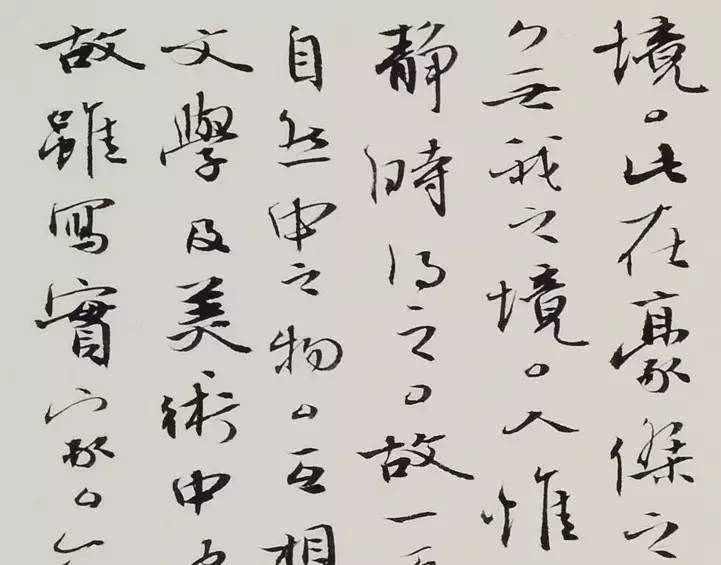 境。此在豪傑之
無我之境。人惟
靜時得之。故一
自然中之物。互相
文學及美術中
故雖寫實家。